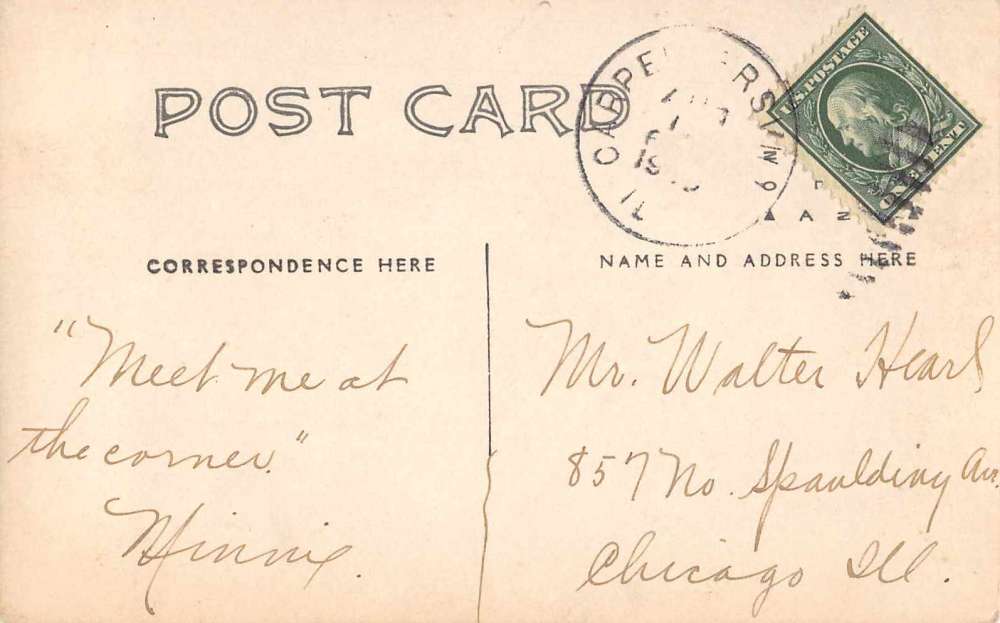 POST CARD
CARPENTERSVILLE
AUG
19
ILL
U.S. POSTAGE
ONE CENT 1
CORRESPONDENCE HERE
NAME AND ADDRESS HERE
"Meet me at
the corner."
Minnie.
Mr. Walter
857 No. Spaulding Av.
Chicago Ill.